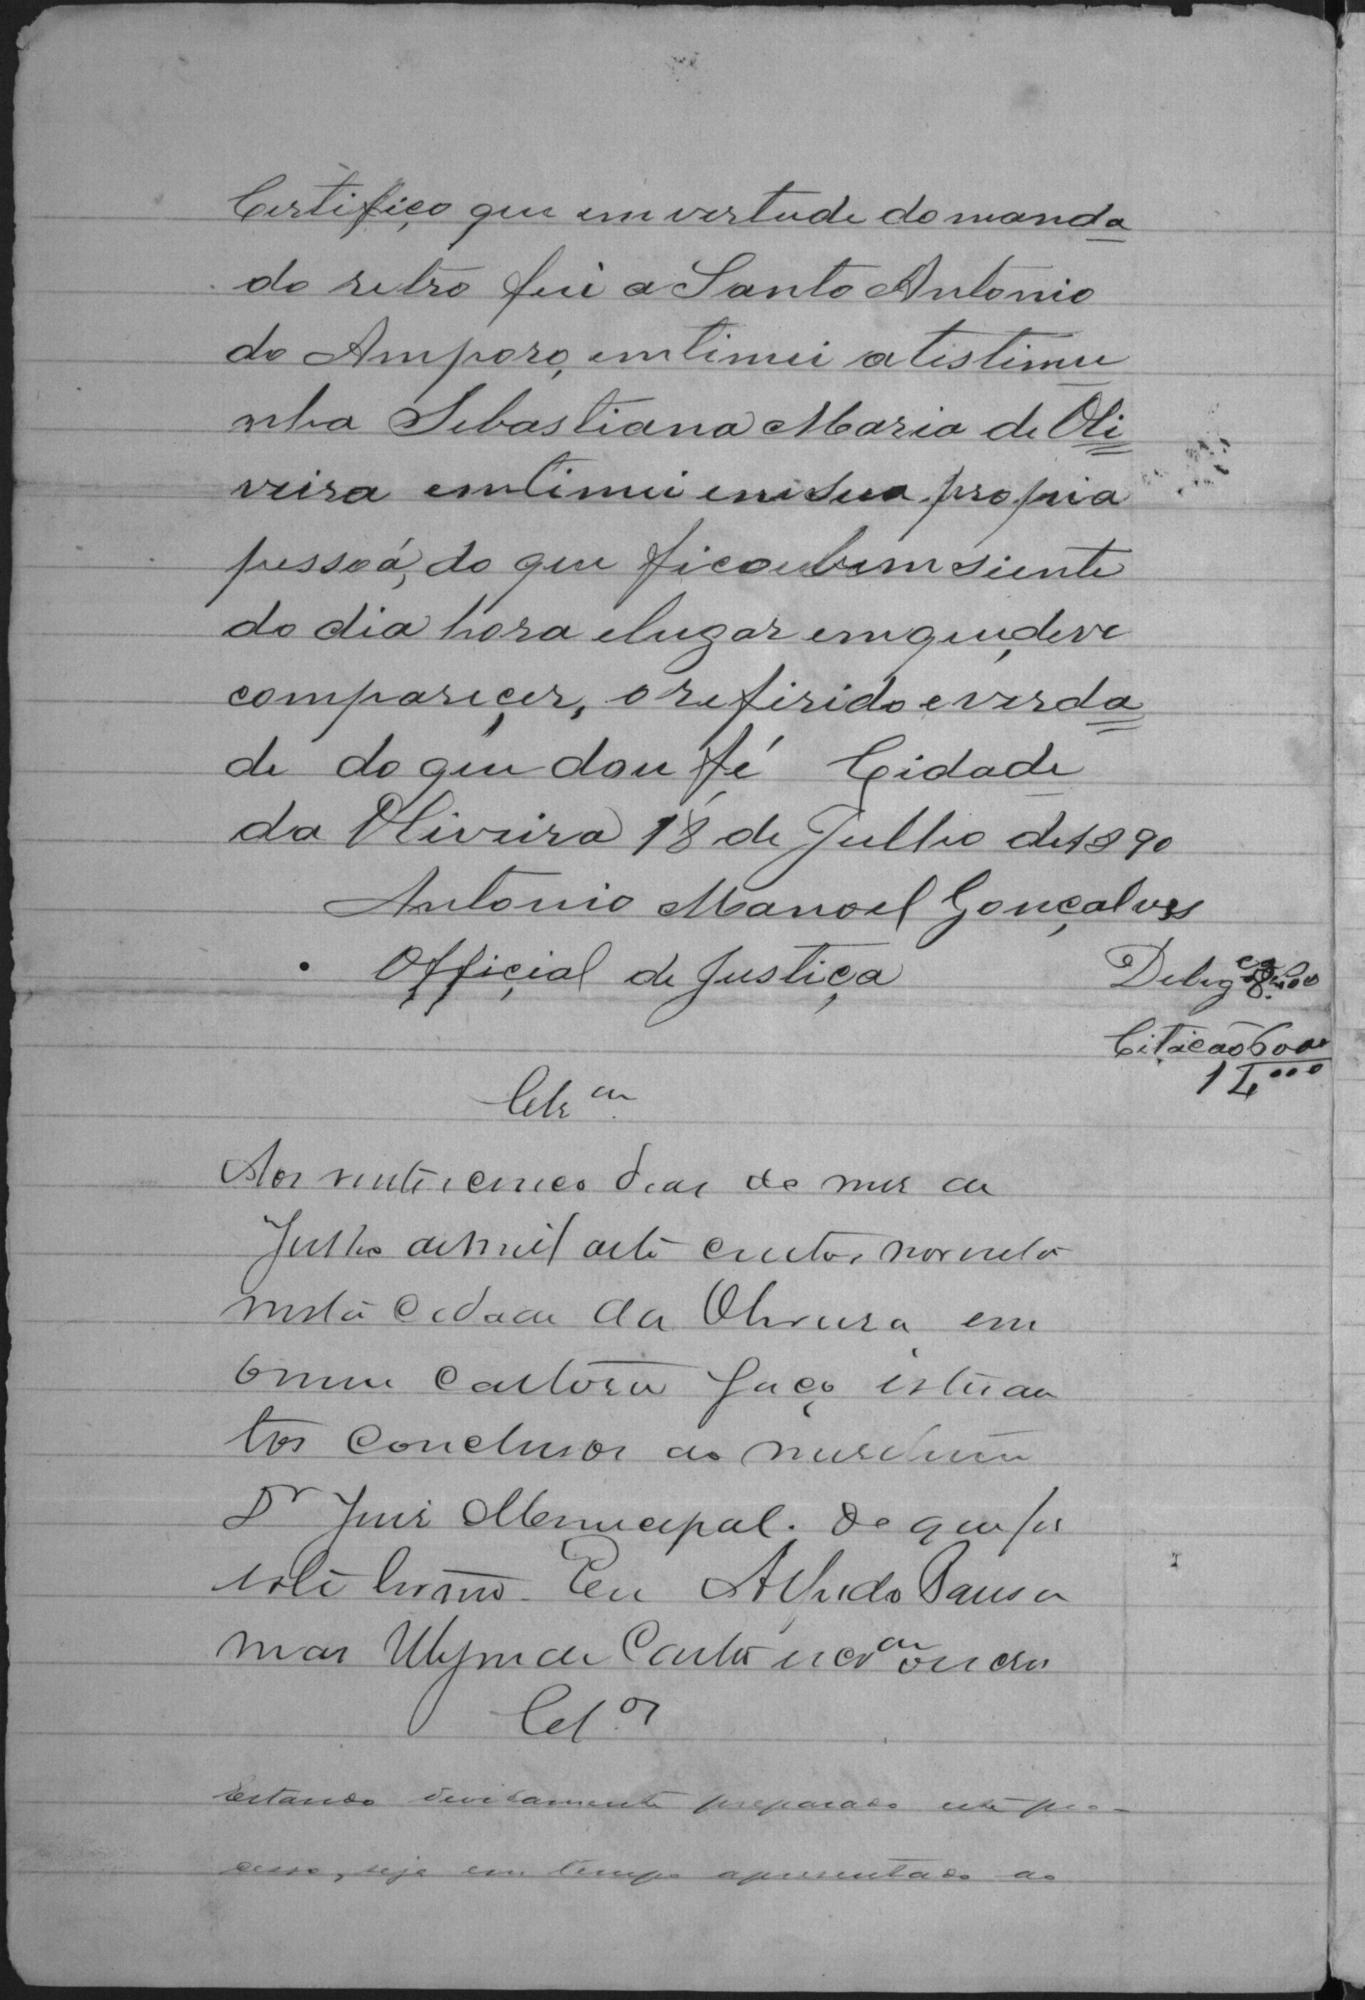 Certifiço que em vertude do manda
do retro fui a Santo Antonio
do Amparo, emtimei a testimu
nha Sebastiana Maria de Oli
veira emtimei em sua propria
pessoá, do que ficou bem siente
do dia hora e lugar em que deve
compareçer, o refirido e verda
de do que dou fé Cidade
da Oliveira 18 de Julho de 1890
Antonio Manoel Gonçalves
Offiçial de Justiça
Citacão 6000
14000
Cls am
Aos vinte e cinco dias do mes de
Julho de mil oito centos noventa
nesta Cidade da Oliveira em
o meu Cartorio faço estes au
tos conclusos ao meritissimo
Dr Juis Municipal. do que fis
este termo. Eu Alfredo
de Castro escram o escrevi
Cls os
Estando devidamente preparado este pro-
cesso, seja em tempo apresentado ao